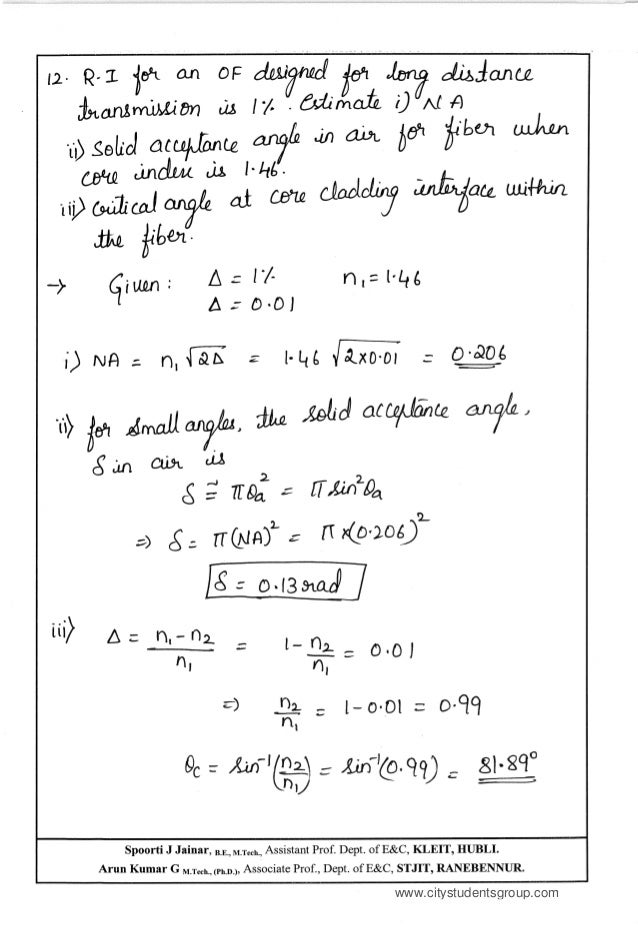 12. R.I for an OF designed for long distance
transmission is 1%. Estimate i) NA
ii) Solid acceptance angle in air for fiber when
core index is 1.46.
iii) Critical angle at core cladding interface within
the fiber.
→ Given : Δ = 1% n₁ = 1.46
Δ = 0.01
i) NA = n₁ √2Δ = 1.46 √2×0.01 = 0.206
ii) for small angles, the solid acceptance angle,
δ in air is
δ ≅ πθa² = π sin²θa
⇒ δ = π(NA)² = π×(0.206)²
δ = 0.13 rad
iii) Δ = (n₁ - n₂)/n₁ = 1 - n₂/n₁ = 0.01
⇒ n₂/n₁ = 1 - 0.01 = 0.99
θc = sin⁻¹(n₂/n₁) = sin⁻¹(0.99) = 81.89°
Spoorti J Jainar, B.E., M.Tech., Assistant Prof. Dept. of E&C, KLEIT, HUBLI.
Arun Kumar G M.Tech., (Ph.D.), Associate Prof., Dept. of E&C, STJIT, RANEBENNUR.
www.citystudentsgroup.com